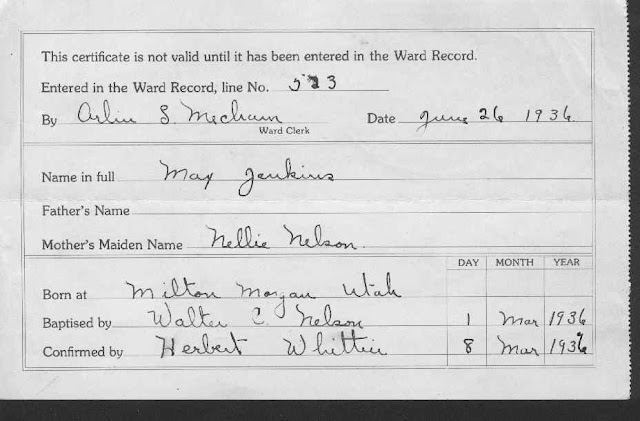 This certificate is not valid until it has been entered in the Ward Record.
Entered in the Ward Record, line No. 523
By Arlin S. Mecham Date June 26 1936
Ward Clerk
Name in full Max Jenkins
Father's Name
Mother's Maiden Name Nellie Nelson.
DAY MONTH YEAR
Born at Milton Morgan Utah
Baptised by Walter C. Nelson 1 Mar 1936
Confirmed by Herbert Whittier 8 Mar 1936